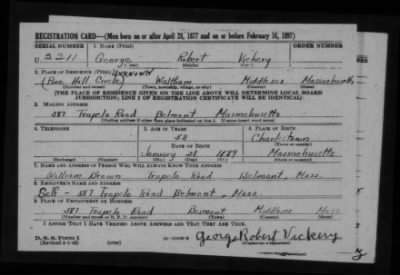 REGISTRATION CARD—(Men born on or after April 28, 1877 and on or before February 16, 1897)
SERIAL NUMBER 1. NAME (Print)
U 3211 George Robert Vickery
(First) (Middle) (Last)
2. PLACE OF RESIDENCE (Print) UNKNOWN
(Pine Hill Circle) Waltham Middlesex Massachusetts
(Number and street) (Town, township, village, or city) (County) (State)
[THE PLACE OF RESIDENCE GIVEN ON THE LINE ABOVE WILL DETERMINE LOCAL BOARD
JURISDICTION; LINE 2 OF REGISTRATION CERTIFICATE WILL BE IDENTICAL]
3. MAILING ADDRESS
387 Trapelo Road Belmont Massachusetts
[Mailing address if other than place indicated on line 2. If same insert word same]
4. TELEPHONE 5. AGE IN YEARS 6. PLACE OF BIRTH
52 Charlestown
DATE OF BIRTH (Town or county)
January 21 1889 Massachusetts
(Exchange) (Number) (Mo.) (Day) (Yr.) (State or country)
7. NAME AND ADDRESS OF PERSON WHO WILL ALWAYS KNOW YOUR ADDRESS
William Brown Trapelo Road Belmont, Mass.
8. EMPLOYER'S NAME AND ADDRESS
Self - 387 Trapelo Road Belmont, Mass.
9. PLACE OF EMPLOYMENT OR BUSINESS
387 Trapelo Road Belmont Middlesex Mass
(Number and street or R. F. D. number) (Town) (County) (State)
I AFFIRM THAT I HAVE VERIFIED ABOVE ANSWERS AND THAT THEY ARE TRUE.
D. S. S. Form 1
(Revised 4-1-42) (over) George Robert Vickery